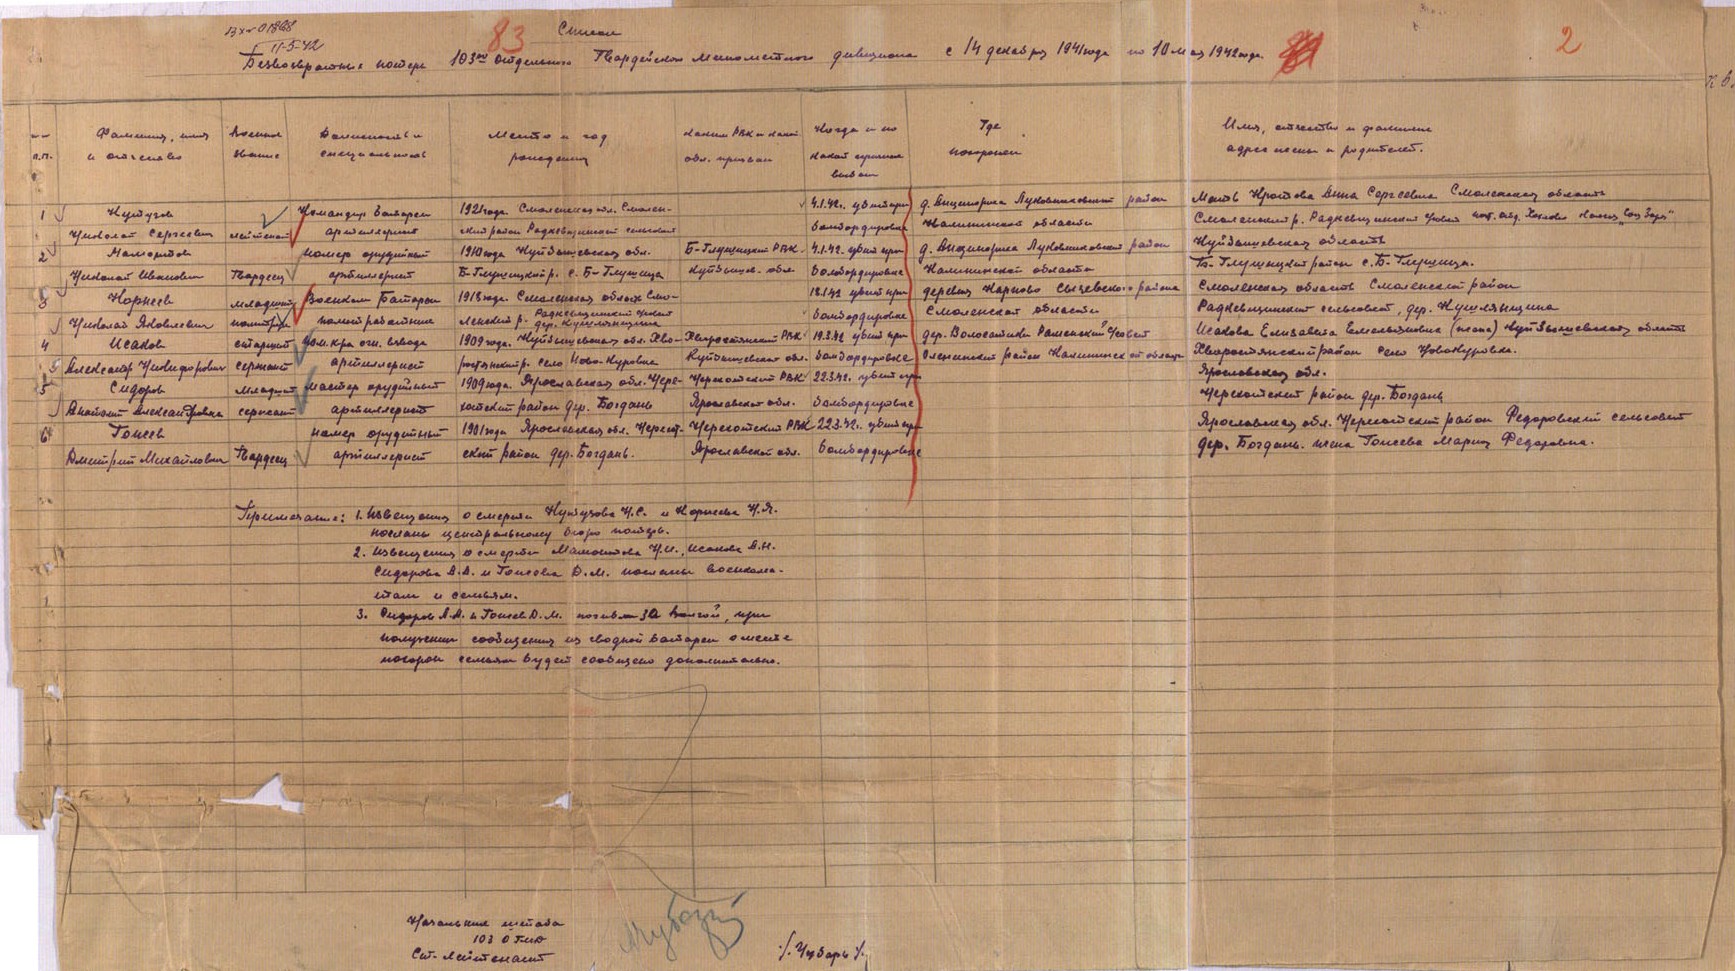 Вх № 01868
11-5-42
83
Список
2
Безвозвратных потерь 103го Отдельного Гвардейского минометного дивизиона с 14 декабря 1941 года по 10 мая 1942 года.
п.п.
Фамилия, имя и отчество
Военное звание
Должность и специальность
Место и год рождения
Каким РВК и какой обл. призван
Когда и по какой причине выбыл
Где похоронен
Имя, отчество и фамилия адрес жены и родителей.
1 Кутузов Командир батареи 1921 года Смоленская обл. Смолен- 4.1.42г. убит при д. Анциторка Луковниковский район Мать Кротова Анна Сергеевна Смоленская область
Николай Сергеевич лейтенант артиллерист ский район Радкевщинский сельсовет бомбардировке Калининской области Смоленский р. Радкевщинский
2 Мамонтов номер орудийный 1910 года Куйбышевская обл. Б-Глушицкий РВК 4.1.42 убит при д. Анциторка Луковниковский район Куйбышевская область
Николай Иванович Гвардеец артиллерист Б-Глушицкий р. с. Б-Глушица Куйбышев. обл. бомбардировке Калининской области Б-Глушицкий район с. Б-Глушица.
3 Корнеев младший Военком батареи 1918 года Смоленская область Смо- 18.1.42 убит при деревня Карпово Сычевского района Смоленская область Смоленский район
Николай Яковлевич политрук политработник ленский р. Радкевщинский дер. Кушлянщина бомбардировке Смоленской области Радкевщинский сельсовет, дер. Кушлянщина
4 Исаков старший Ком. огн. взвода 1909 года Куйбышевская обл. Хво- Хворостянский РВК 19.3.42 убит при дер. Волосатики Раменский Исакова Елизавета Емельяновна (жена) Куйбышевская область
Александр Никифорович сержант артиллерист ростянский р. село Ново-Куровка Куйбышевской обл. бомбардировке Оленинский район Калининской области Хворостянский район село Новокуровка.
5 Сидоров младший мастер орудийный 1909 года. Ярославская обл. Чере- Черехотский РВК 22.3.42г. убит при Ярославская обл.
Анатолий Александрович сержант артиллерист хотский район дер. Богдань Ярославской обл. бомбардировке Черехотский район дер. Богдань
6 Гонеев номер орудийный 1901 года Ярославская обл. Черехот- Черехотский РВК 22.3.42г. убит при Ярославская обл. Черехотский район Федоровский сельсовет
Дмитрий Михайлович Гвардеец артиллерист ский район дер. Богдань. Ярославской обл. бомбардировке дер. Богдань. жена Гонеева Мария Федоровна.
Примечание: 1. Извещения о смерти Кутузова Н.С. и Корнеева Н.Я.
посланы центральному бюро потерь.
2. Извещения о смерти Мамонтова Н.И., Исакова А.Н.
Сидорова А.А. и Гонеева Д.М. посланы военкома-
там и семьям.
3. Сидоров А.А. и Гонеев Д.М. погибли за Волгой, при
получении сообщения из сводной батареи о месте
похорон семьям будет сообщено дополнительно.
Начальник штаба
103 ОГМД
Ст. лейтенант
/. Чубарь /.